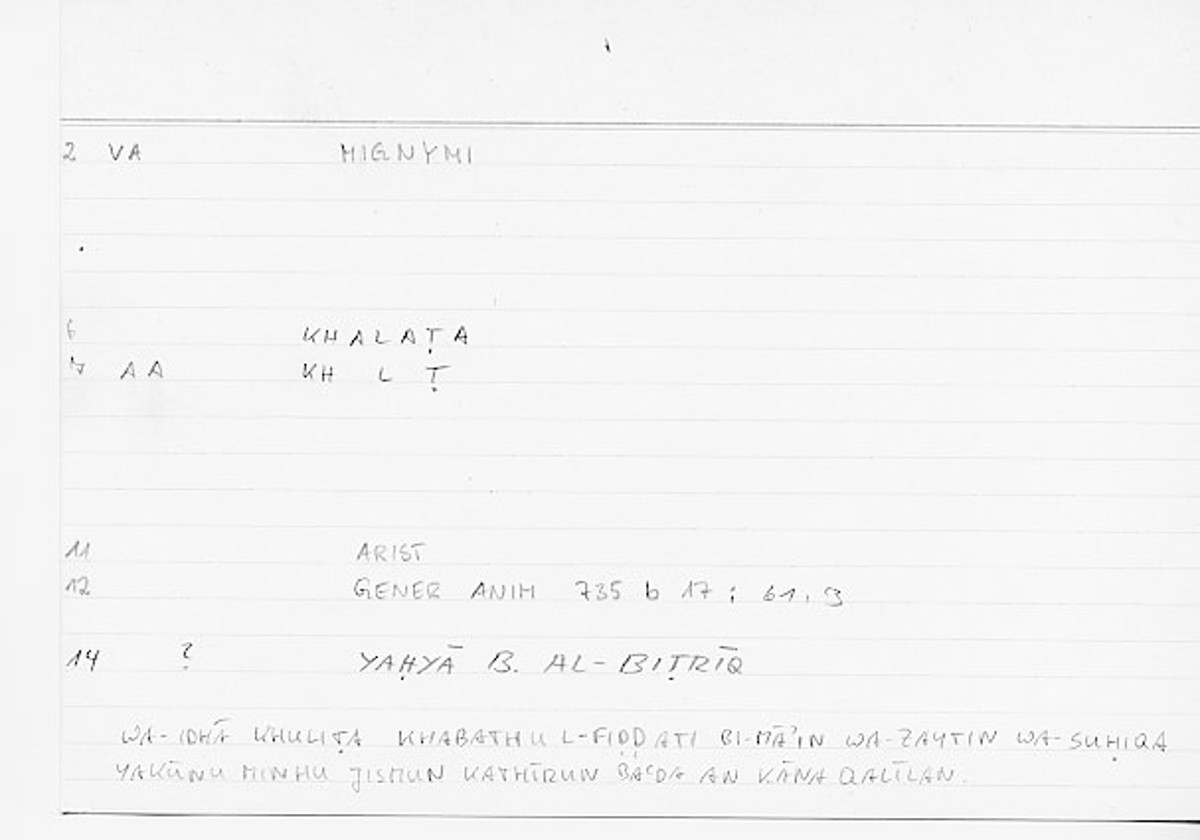 2 VA MIGNYMI
6 KHALAṬA
7 AA KH L Ṭ
11 ARIST
12 GENER ANIM 735 b 17 ; 61,9
14 ? YAḤYĀ B. AL-BIṬRĪQ
WA-IDHĀ KHULIṬA KHABATHU L-FIḌḌATI BI-MĀʾIN WA-ZAYTIN WA-SUḤIQA
YAKŪNU MINHU JISMUN KATHĪRUN BAʿDA AN KĀNA QALĪLAN.